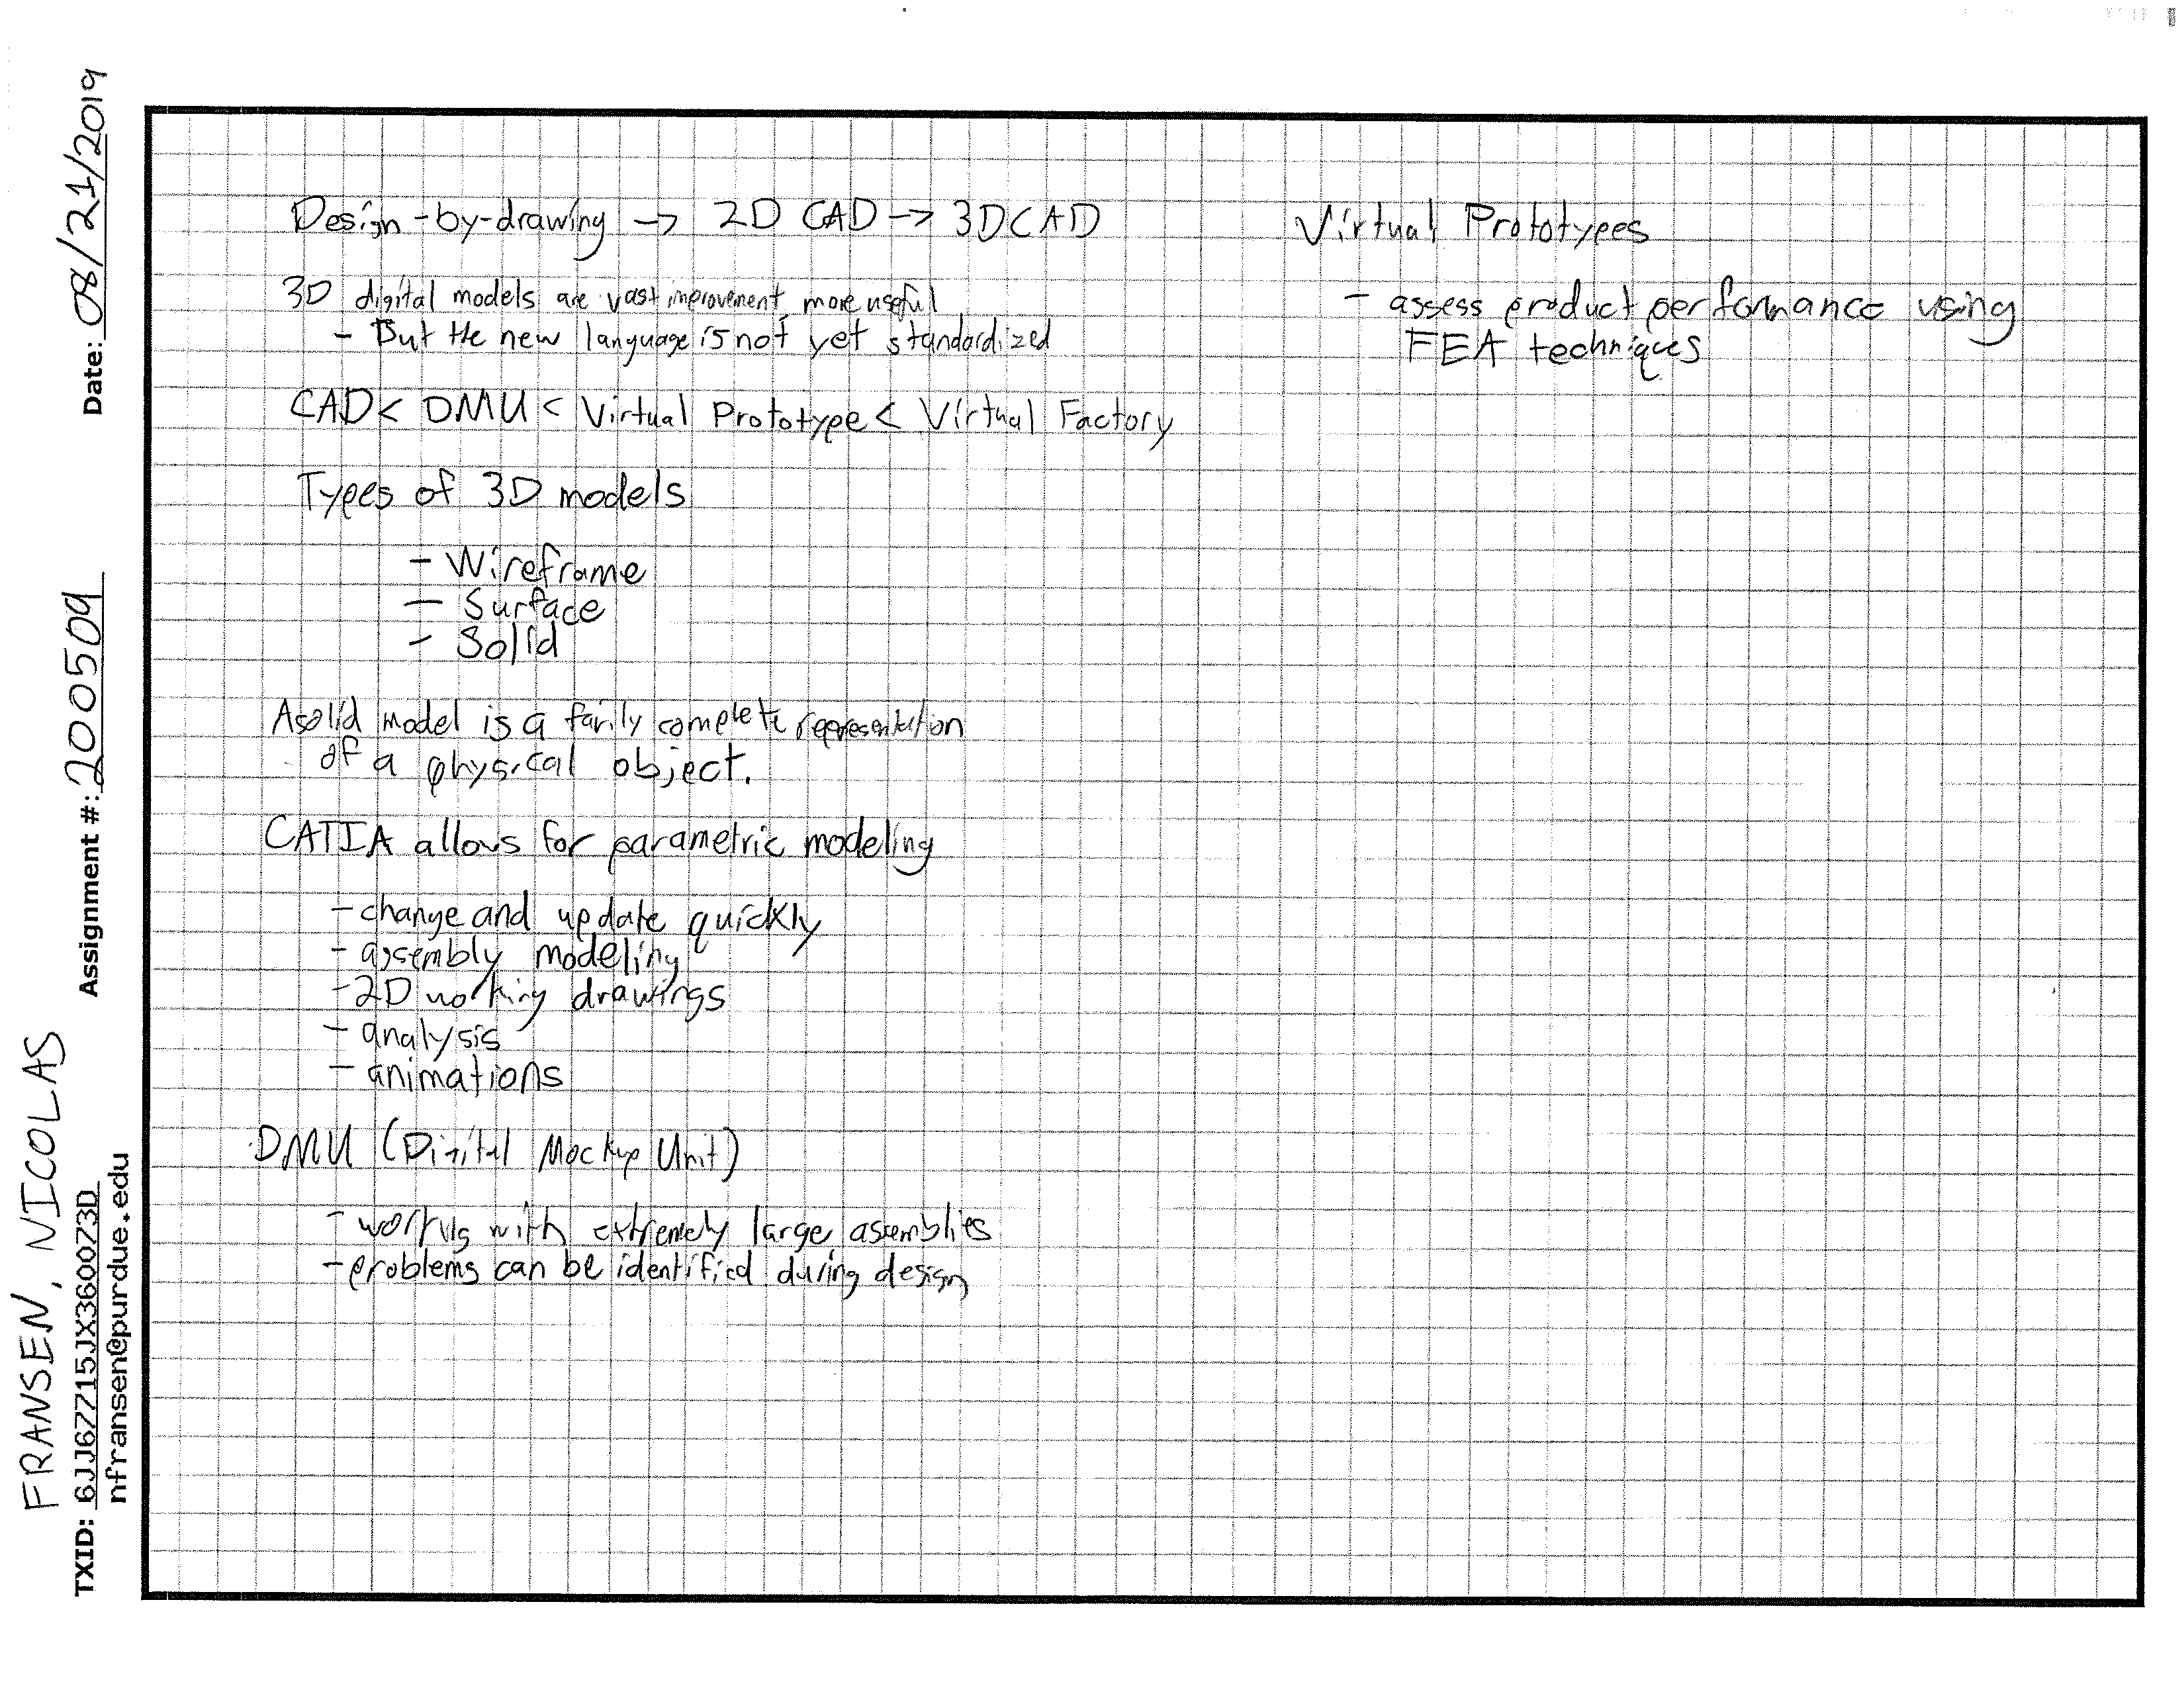 FRANSEN, NICOLAS
TXID: 6JJ6ZZ15JX3600Z3D
nfransen@purdue.edu
Assignment #: 200509
Date: 08/21/2019
Design-by-drawing → 2D CAD → 3D CAD
3D digital models are vast improvement, more useful
- But the new language is not yet standardized
CAD < DMU < Virtual Prototype < Virtual Factory
Types of 3D models
- Wireframe
- Surface
- Solid
A solid model is a farily complete representation
of a physical object.
CATIA allows for parametric modeling
- change and update quickly
- assembly modeling
- 2D working drawings
- analysis
- animations
DMU (Digital Mockup Unit)
- with extremely large assemblies
- problems can be identified during design
Virtual Prototypes
- assess product performance using
FEA techniques